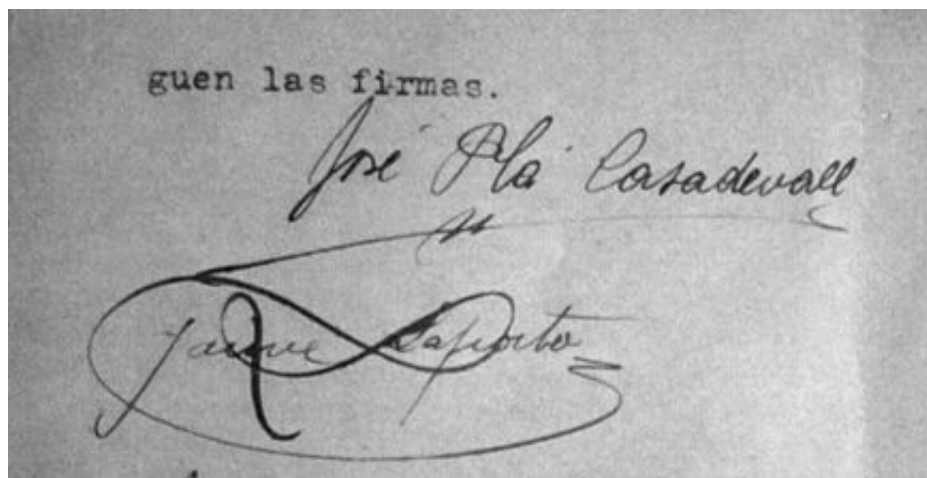 guen las firmas.
José Plá Casadevall
Jaume Laporta